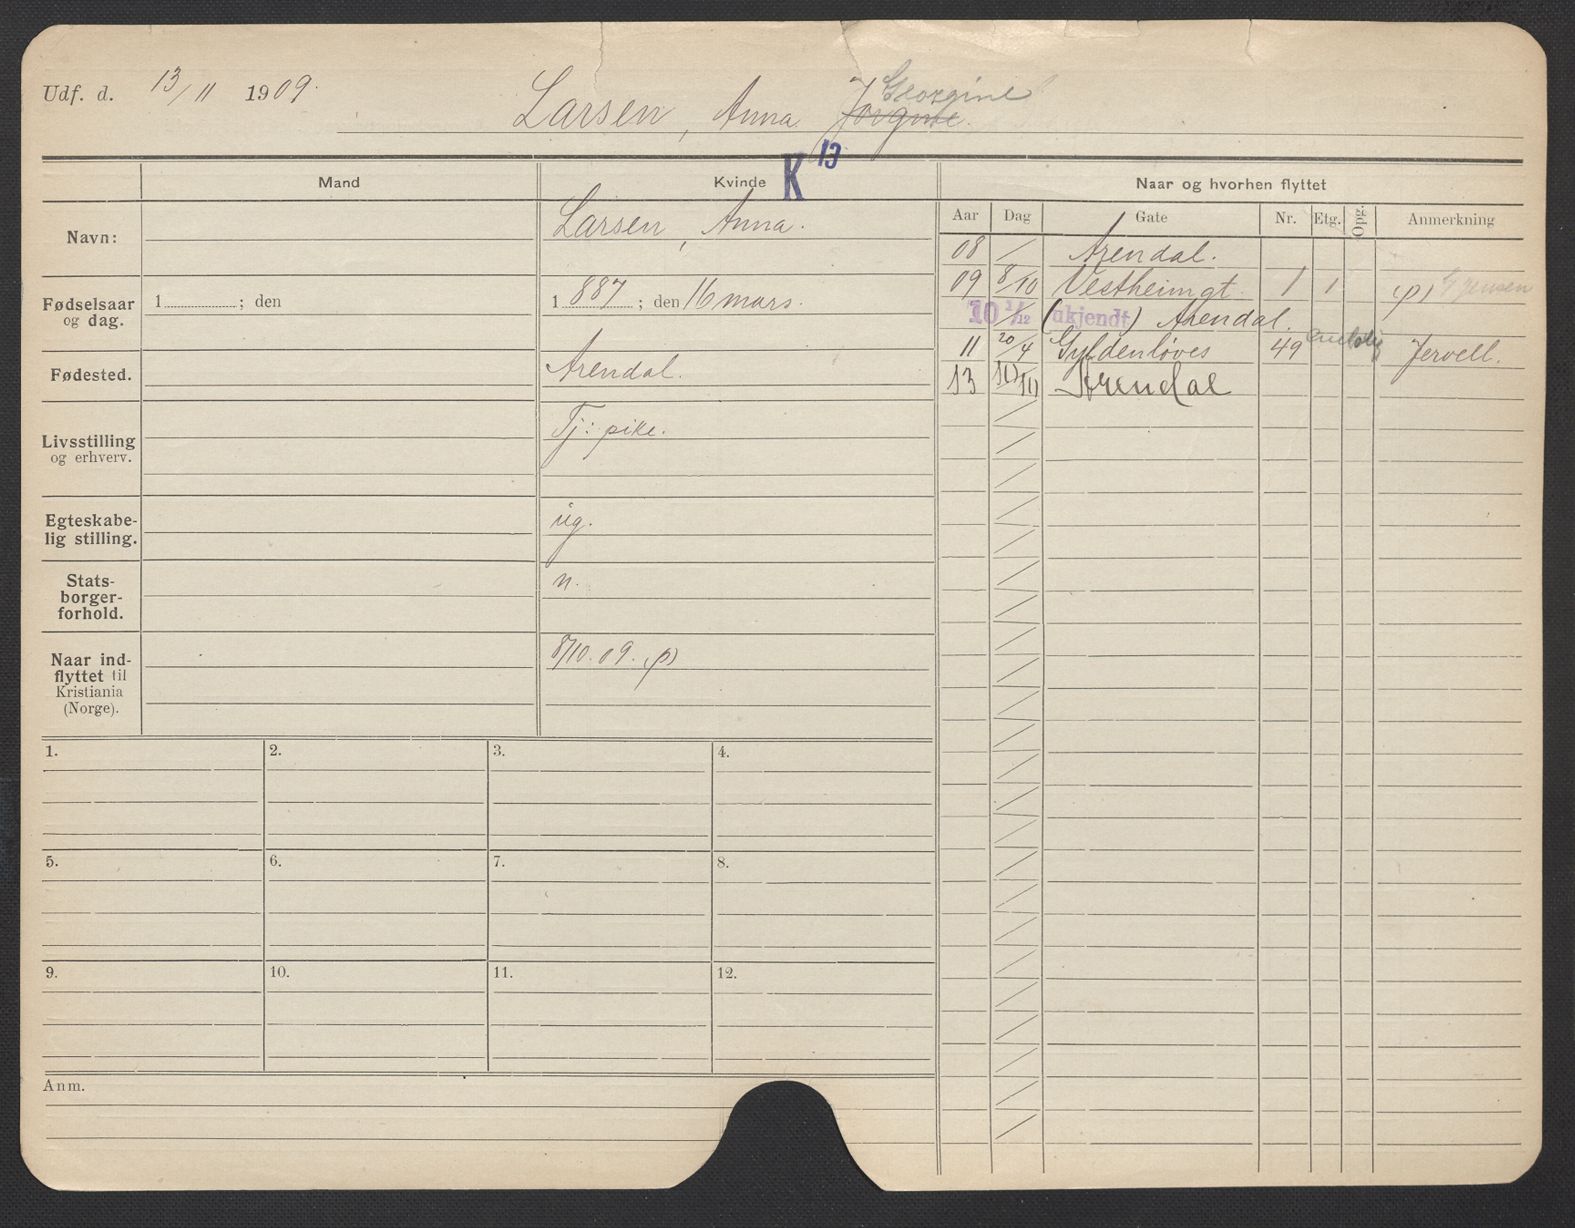 Udf. d. 13/11 1909.
Larsen, Anna Jorgine. Georgine
K 13
Mand
Kvinde
Naar og hvorhen flyttet
Aar Dag Gate Nr. Etg. Opg. Anmerkning
Navn:
Larsen, Anna.
Fødselsaar og dag.
1 ; den
1 887 ; den 16 mars.
Fødested.
Arendal.
Livsstilling og erhverv.
Tj: pike.
Egteskabelig stilling.
ug.
Statsborgerforhold.
n.
Naar indflyttet til Kristiania (Norge).
8/10. 09. (p)
08 / Arendal.
09 8/10 Vestheimgt. 1 1 (p) Jensen
10 1/12 (ukjendt) Arendal.
11 20/4 Gyldenløves 49 Jervell.
13 10/10 Arendal
1. 2. 3. 4.
5. 6. 7. 8.
9. 10. 11. 12.
Anm.